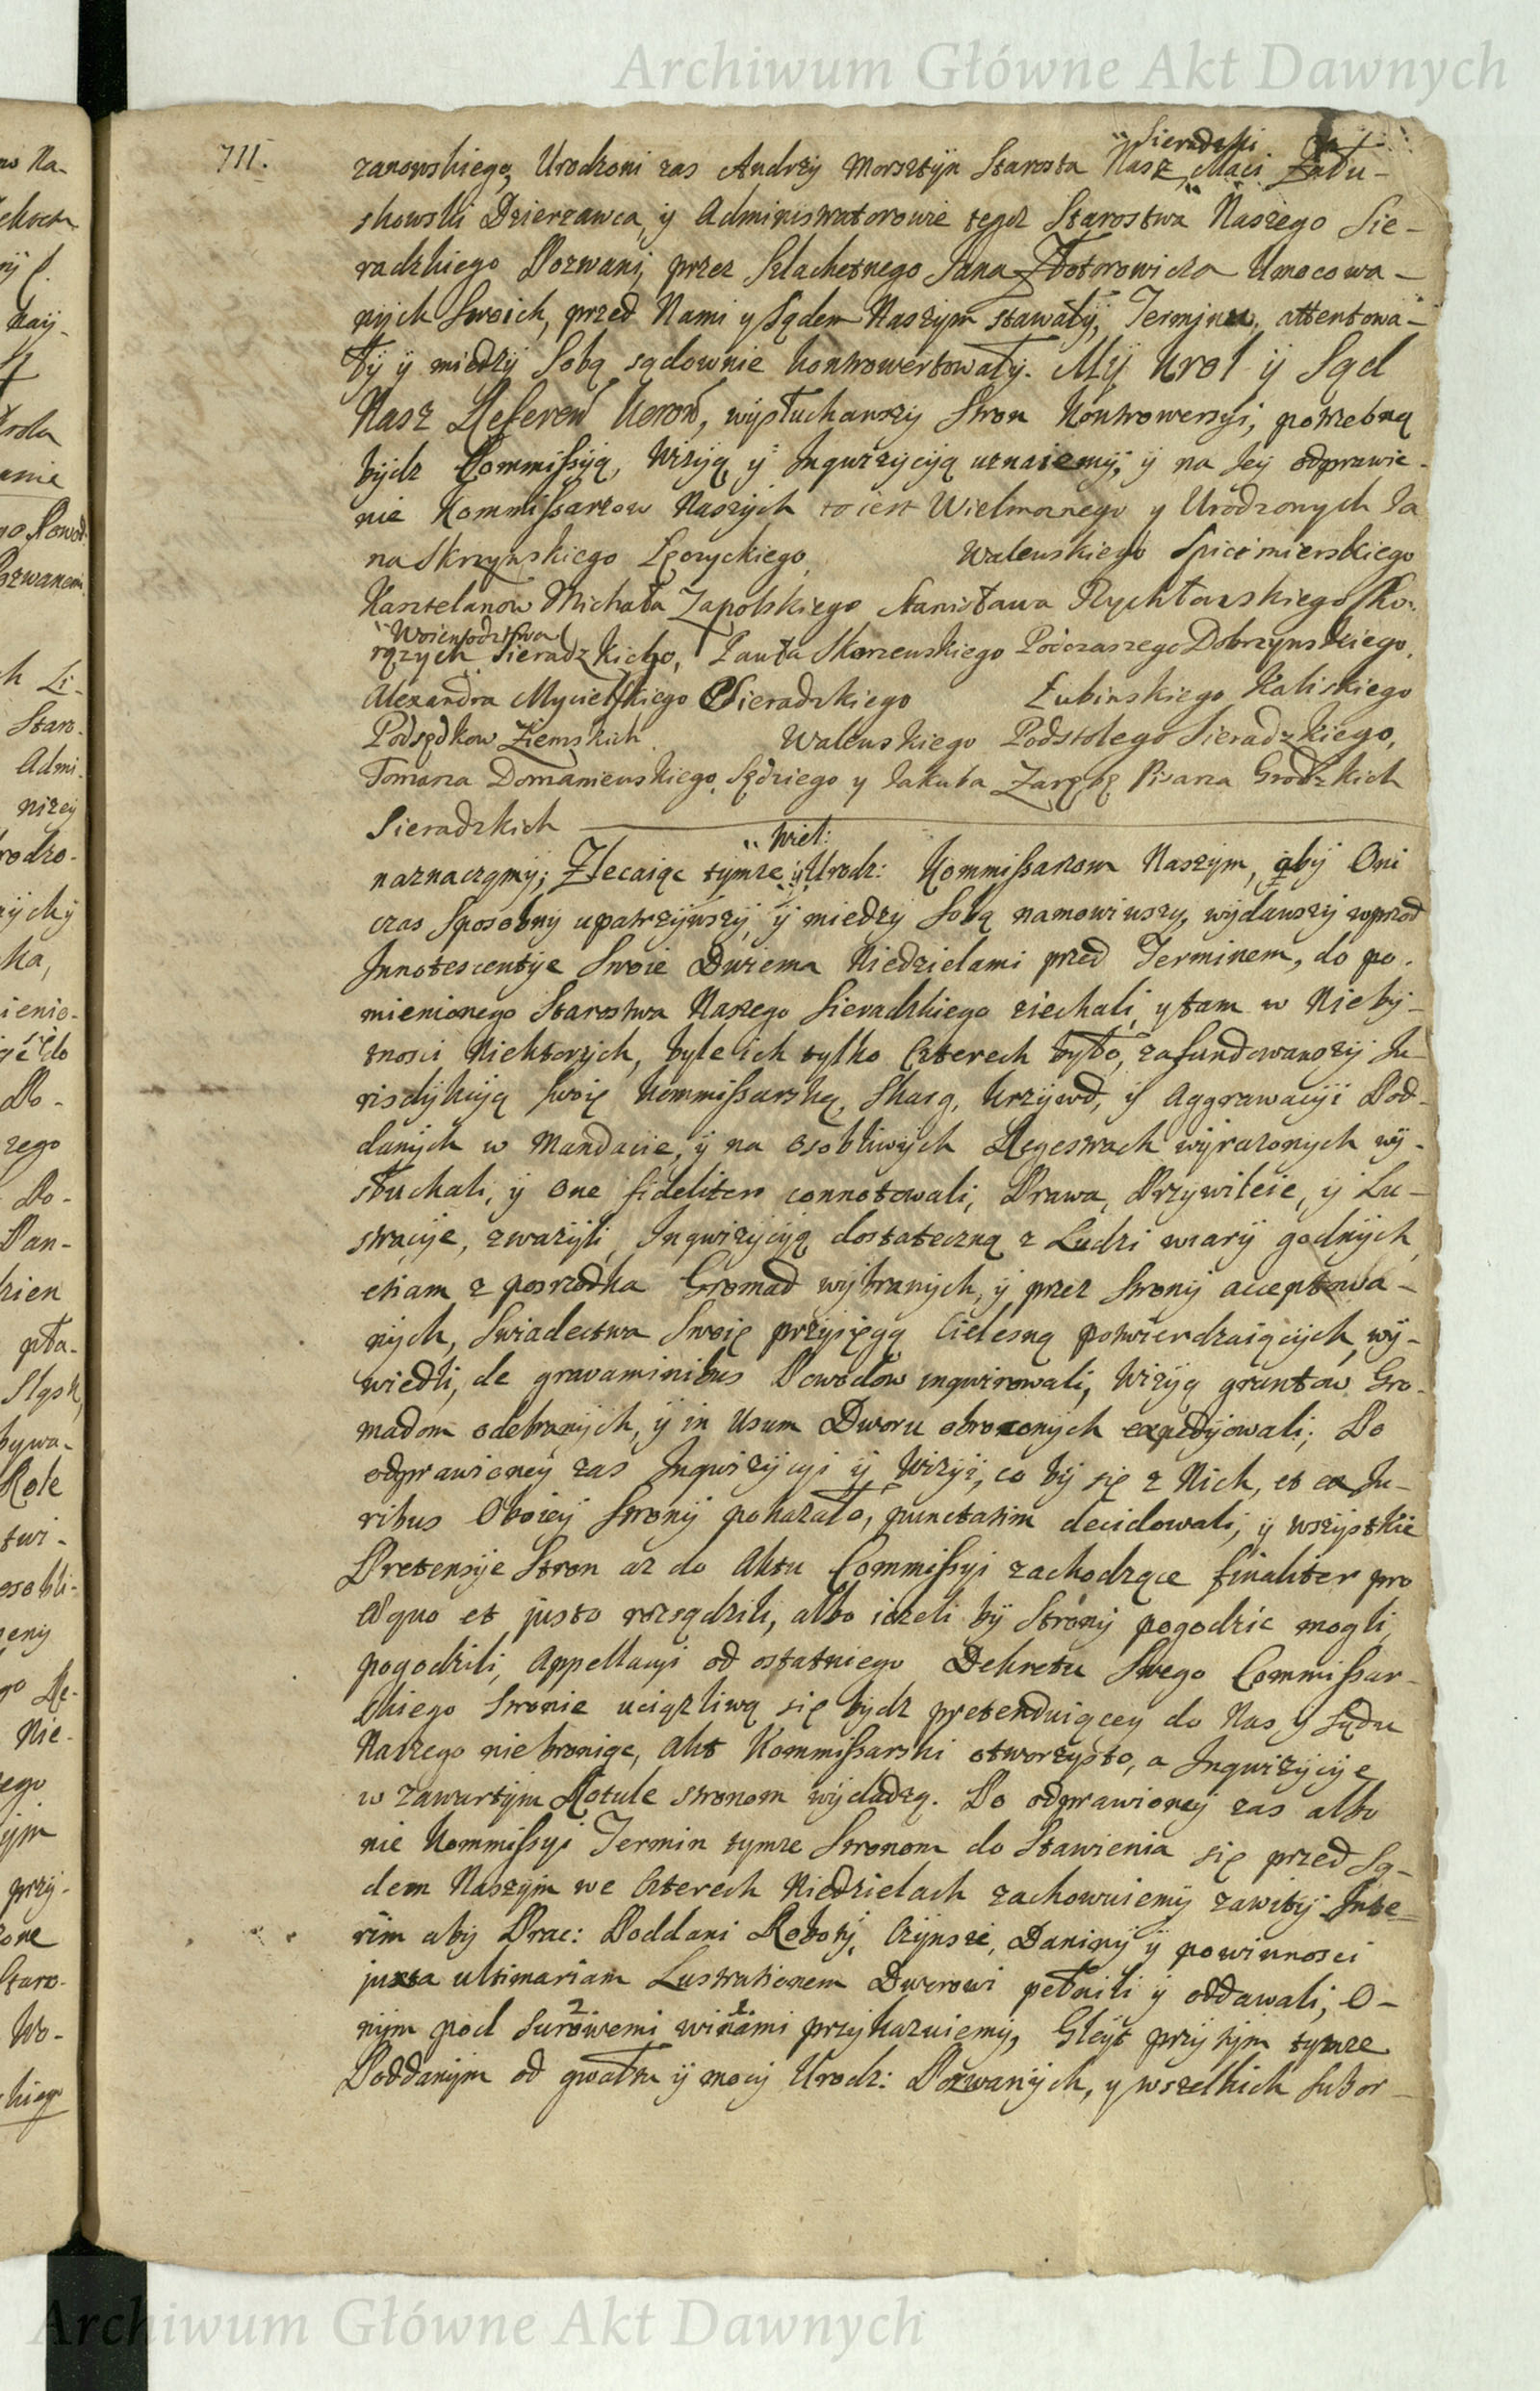 Archiwum Główne Akt Dawnych
711.
Sieradzki
zanowskiego, Urodzoni zas Andrzy Morsztyn Starosta Nasz, Maci Zadu-
skowski Dzierzawca, y Administratorowie tegoz Starostwa Naszego Sie-
radzkiego Pozwani, przez Szlachetnego Jana Złotorowicza Umocowa-
nych Swoich, przed Nami y Sądem Naszym stawały, Terminu, attentowa-
ły y miedzy Sobą sądownie kontrowertowały. My Krol y Sąd
Nasz Referen Koron, wysłuchawszy Stron Kontrowersyi, potrzebną
bydz Commissyą, Wizyą y Inqwizycyą uznaiemy, y na Jey odprawie-
nie Kommissarzow Naszych to iest Wielmoznego y Urodzonych Ja
na Skrzynskiego Łęczyckiego, Walewskiego Spicimierskiego
Kasztelanow Michała Zapolskiego Stanisława Rychłowskiego Cho-
Woiewodztwa
rązych Sieradzkiego, Pawła Skorzewskiego Podczaszego Dobrzynskiego,
Alexandra Mycielskiego Sieradzkiego Łubinskiego Kaliskiego
Podsędkow Ziemskich Walewskiego Podstolego Sieradzkiego,
Tomasza Domaniewskiego Sędziego y Jakuba Zarębę Pisarza Grodzkich
Sieradzkich
Wiel:
naznaczymy; Zlecaiąc tymze y Urodz: Kommissarzom Naszym, aby Oni
czas Sposobny upatrzywszy, y miedzy Sobą namowiwszy, wydawszy wprzod
Innotescentye Swoie Dwiema Niedzielami przed Terminem, do po-
mienionego Starostwa Naszego Sieradzkiego ziechali, y tam w Nieby-
tnosci Niektorych, byle ich tylko Czterech było, zafundowawszy Ju-
risdykcyą Swoię Kommissarską, Skarg, Krzywd, y Aggrawacyi Pod-
danych w Mandacie, y na osobliwych Regestrach wyrazonych wy-
słuchali, y one fideliter connotowali, Prawa, Przywileie, y Lu-
stracye, zwazyli, Inqwizycyą dostateczną z Ludzi wiary godnych,
etiam z posrzodka Gromad wybranych, y przez Strony acceptowa-
nych, Swiadectwa Swoię przysięgą Cielesną potwierdzaiących, wy-
wiedli, de gravaminibus Powodow inqwirowali, Wizyą gruntow Gro-
madom odebranych, y in Usum Dworu obroconych expedyowali; Po
odprawioney zas Inqwizycyi y Wizyi, co by się z Nich, et ex Ju-
ribus Oboiey Strony pokazało, punctatim decidowali, y wszystkie
Pretensye Stron az do Aktu Commissyi zachodzące finaliter pro
Æquo et justo rozsądzili, albo iezeli by Strony pogodzic mogli,
pogodzili, Appellacyi od ostatniego Dekretu Swego Commissar-
skiego Stronie uciązliwą się bydz pretenduiącey do Nas y Sądu
Naszego niebroniąc, Akt Kommissarski otworzysto, a Inqwizycye
w zawartym Rotule stronom wydadzą. Po odprawioney zas albo
nie Kommissyi Termin tymze Stronom do Stawienia się przed Są-
dem Naszym we Czterech Niedzielach zachowuiemy zawity. Inte-
rim aby Prac: Poddani Roboty, Czynsze, Daniny y powinnosci
juxta ultimariam Lustrationem Dworowi pełnili y oddawali, O-
nym pod surowemi winami przykazuiemy, Gleyt przytym tymze
Poddanym od gwałtu y mocy Urodz: Pozwanych, y wszelkich Subor-
Archiwum Główne Akt Dawnych